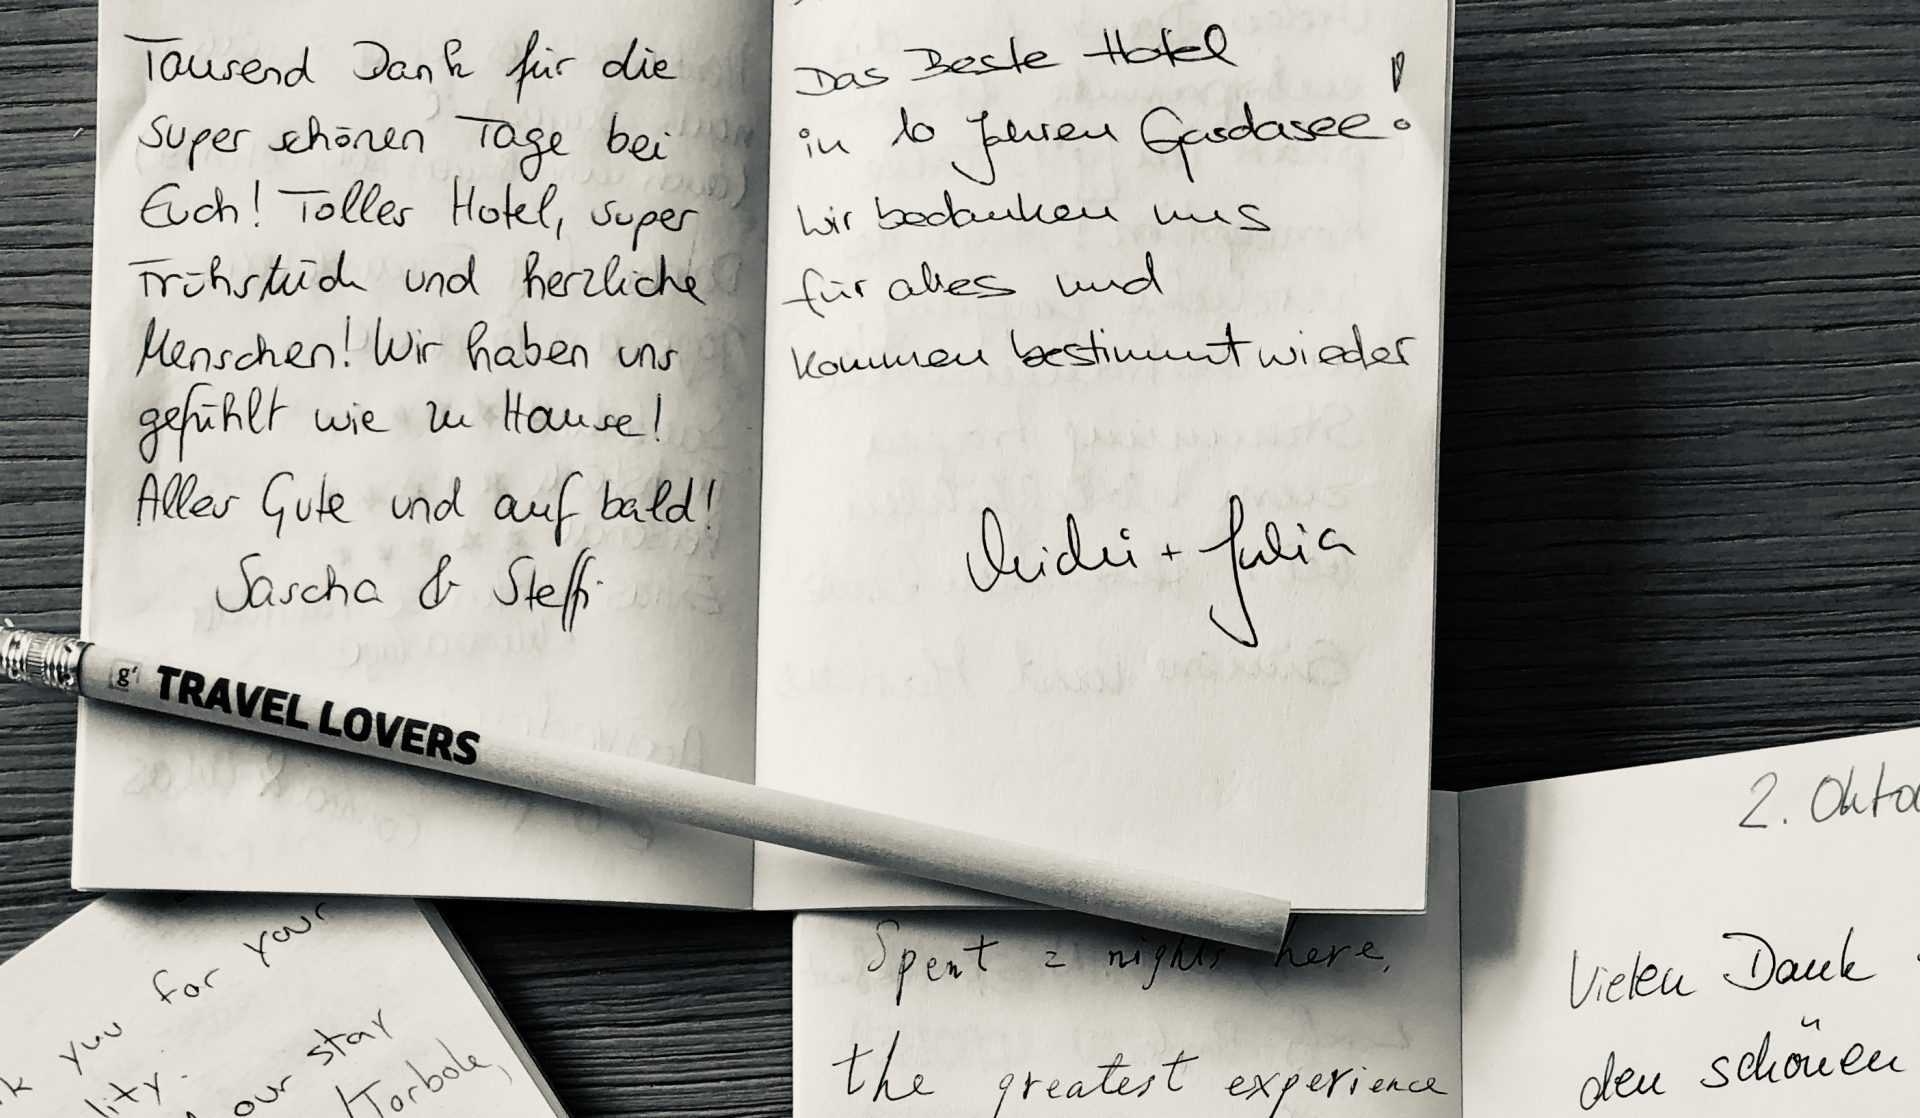 Tausend Dank für die
super schönen Tage bei
Euch! Tolles Hotel, super
Frühstück und herzliche
Menschen! Wir haben uns
gefühlt wie zu Hause!
Alles Gute und auf bald!
Sascha & Steffi
Das Beste Hotel
in 10 Jahren Gardasee!
Wir bedanken uns
für alles und
kommen bestimmt wieder
+ Julia
g'
TRAVEL LOVERS
for your
you
our stay
Torbole,
Spent 2 nights here,
the greatest experience
2. Okto
Vielen Dank
den schönen